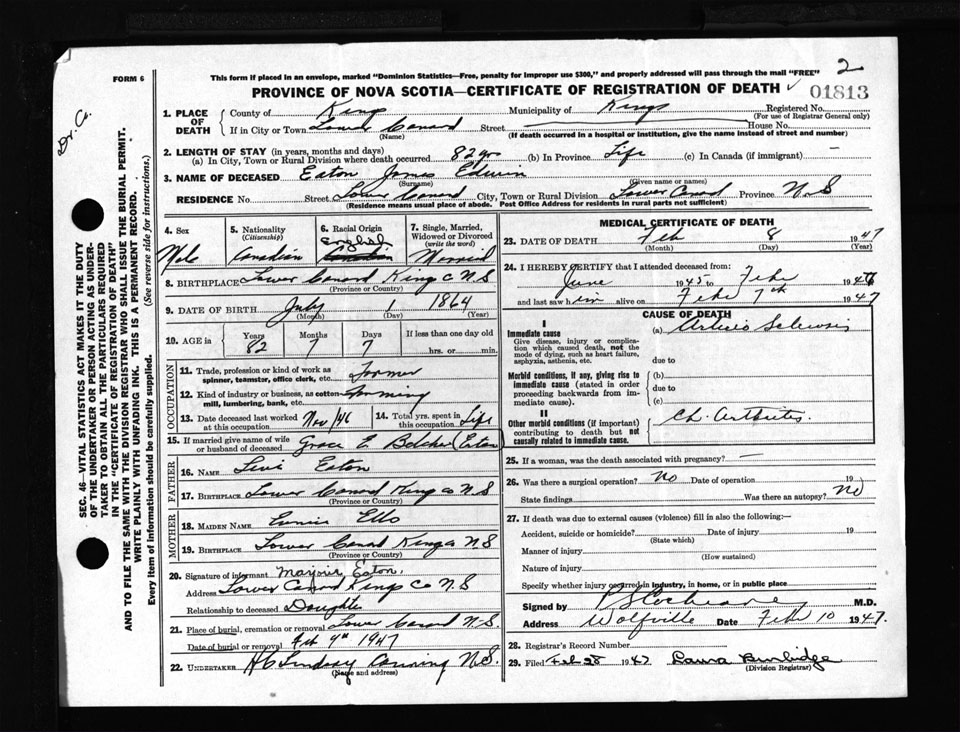 Dr. Co.
FORM 6
This form if placed in an envelope, marked "Dominion Statistics—Free, penalty for improper use $300," and properly addressed will pass through the mail "FREE" 2
PROVINCE OF NOVA SCOTIA—CERTIFICATE OF REGISTRATION OF DEATH 01813
1. PLACE OF DEATH County of Kings Municipality of Kings Registered No.
(For use of Registrar General only)
If in City or Town Lower Canard Street House No.
(Name) (If death occurred in a hospital or institution, give the name instead of street and number)
2. LENGTH OF STAY (in years, months and days)
(a) In City, Town or Rural Division where death occurred 82 yr (b) In Province Life (c) In Canada (if immigrant) —
3. NAME OF DECEASED Eaton James Edwin
(Surname) (Given name or names)
RESIDENCE No. Street Lower Canard City, Town or Rural Division Lower Canard Province N.S
(Residence means usual place of abode. Post Office Address for residents in rural parts not sufficient)
SEC. 46—VITAL STATISTICS ACT MAKES IT THE DUTY
OF THE UNDERTAKER OR PERSON ACTING AS UNDER-
TAKER TO OBTAIN ALL THE PARTICULARS REQUIRED
IN THE "CERTIFICATE OF REGISTRATION OF DEATH"
AND TO FILE THE SAME WITH THE DIVISION REGISTRAR WHO SHALL ISSUE THE BURIAL PERMIT.
WRITE PLAINLY WITH UNFADING INK. THIS IS A PERMANENT RECORD.
Every item of information should be carefully supplied. (See reverse side for instructions.)
4. Sex 5. Nationality (Citizenship) 6. Racial Origin 7. Single, Married, Widowed or Divorced (write the word)
Male Canadian English Canadian Married
8. BIRTHPLACE Lower Canard Kings Co N.S
(Province or Country)
9. DATE OF BIRTH July 1 1864
(Month) (Day) (Year)
10. AGE in Years 82 Months 7 Days 7 If less than one day old
hrs. or min.
OCCUPATION
11. Trade, profession or kind of work as spinner, teamster, office clerk, etc. Farmer
12. Kind of industry or business, as cotton mill, lumbering, bank, etc. Farming
13. Date deceased last worked at this occupation Nov/46 14. Total yrs. spent in this occupation Life
15. If married give name of wife or husband of deceased Grace E. Belcher (Eaton)
FATHER
16. NAME Levi Eaton
17. BIRTHPLACE Lower Canard Kings Co N.S
(Province or Country)
MOTHER
18. MAIDEN NAME Eunice Ells
19. BIRTHPLACE Lower Canard Kings N.S
(Province or Country)
20. Signature of informant Marjorie Eaton.
Address Lower Canard Kings Co N.S
Relationship to deceased Daughter
21. Place of burial, cremation or removal Lower Canard N.S.
Date of burial or removal Feb 9th 1947
22. UNDERTAKER H C Lindsay Canning N.S.
(Name and address)
MEDICAL CERTIFICATE OF DEATH
23. DATE OF DEATH Feb 8 1947
(Month) (Day) (Year)
24. I HEREBY CERTIFY that I attended deceased from:
June 1945 to Feb 194
and last saw him alive on Feb 7th 1947
CAUSE OF DEATH
I
Immediate cause (a) Arterio Sclerosis
Give disease, injury or complication which caused death, not the mode of dying, such as heart failure, asphyxia, asthenia, etc. due to
Morbid conditions, if any, giving rise to immediate cause (stated in order proceeding backwards from immediate cause). (b)
due to
(c)
II
Other morbid conditions (if important) contributing to death but not causally related to immediate cause. Ch. Arthritis
25. If a woman, was the death associated with pregnancy? —
26. Was there a surgical operation? No Date of operation 19
State findings Was there an autopsy? No
27. If death was due to external causes (violence) fill in also the following:—
Accident, suicide or homicide? Date of injury 19
(State which)
Manner of injury
(How sustained)
Nature of injury
Specify whether injury occurred in industry, in home, or in public place
Signed by P S Cochrane M.D.
Address Wolfville Date Feb 10 1947.
28. Registrar's Record Number
29. Filed Feb 28 1947 Laura Burbidge
(Division Registrar)